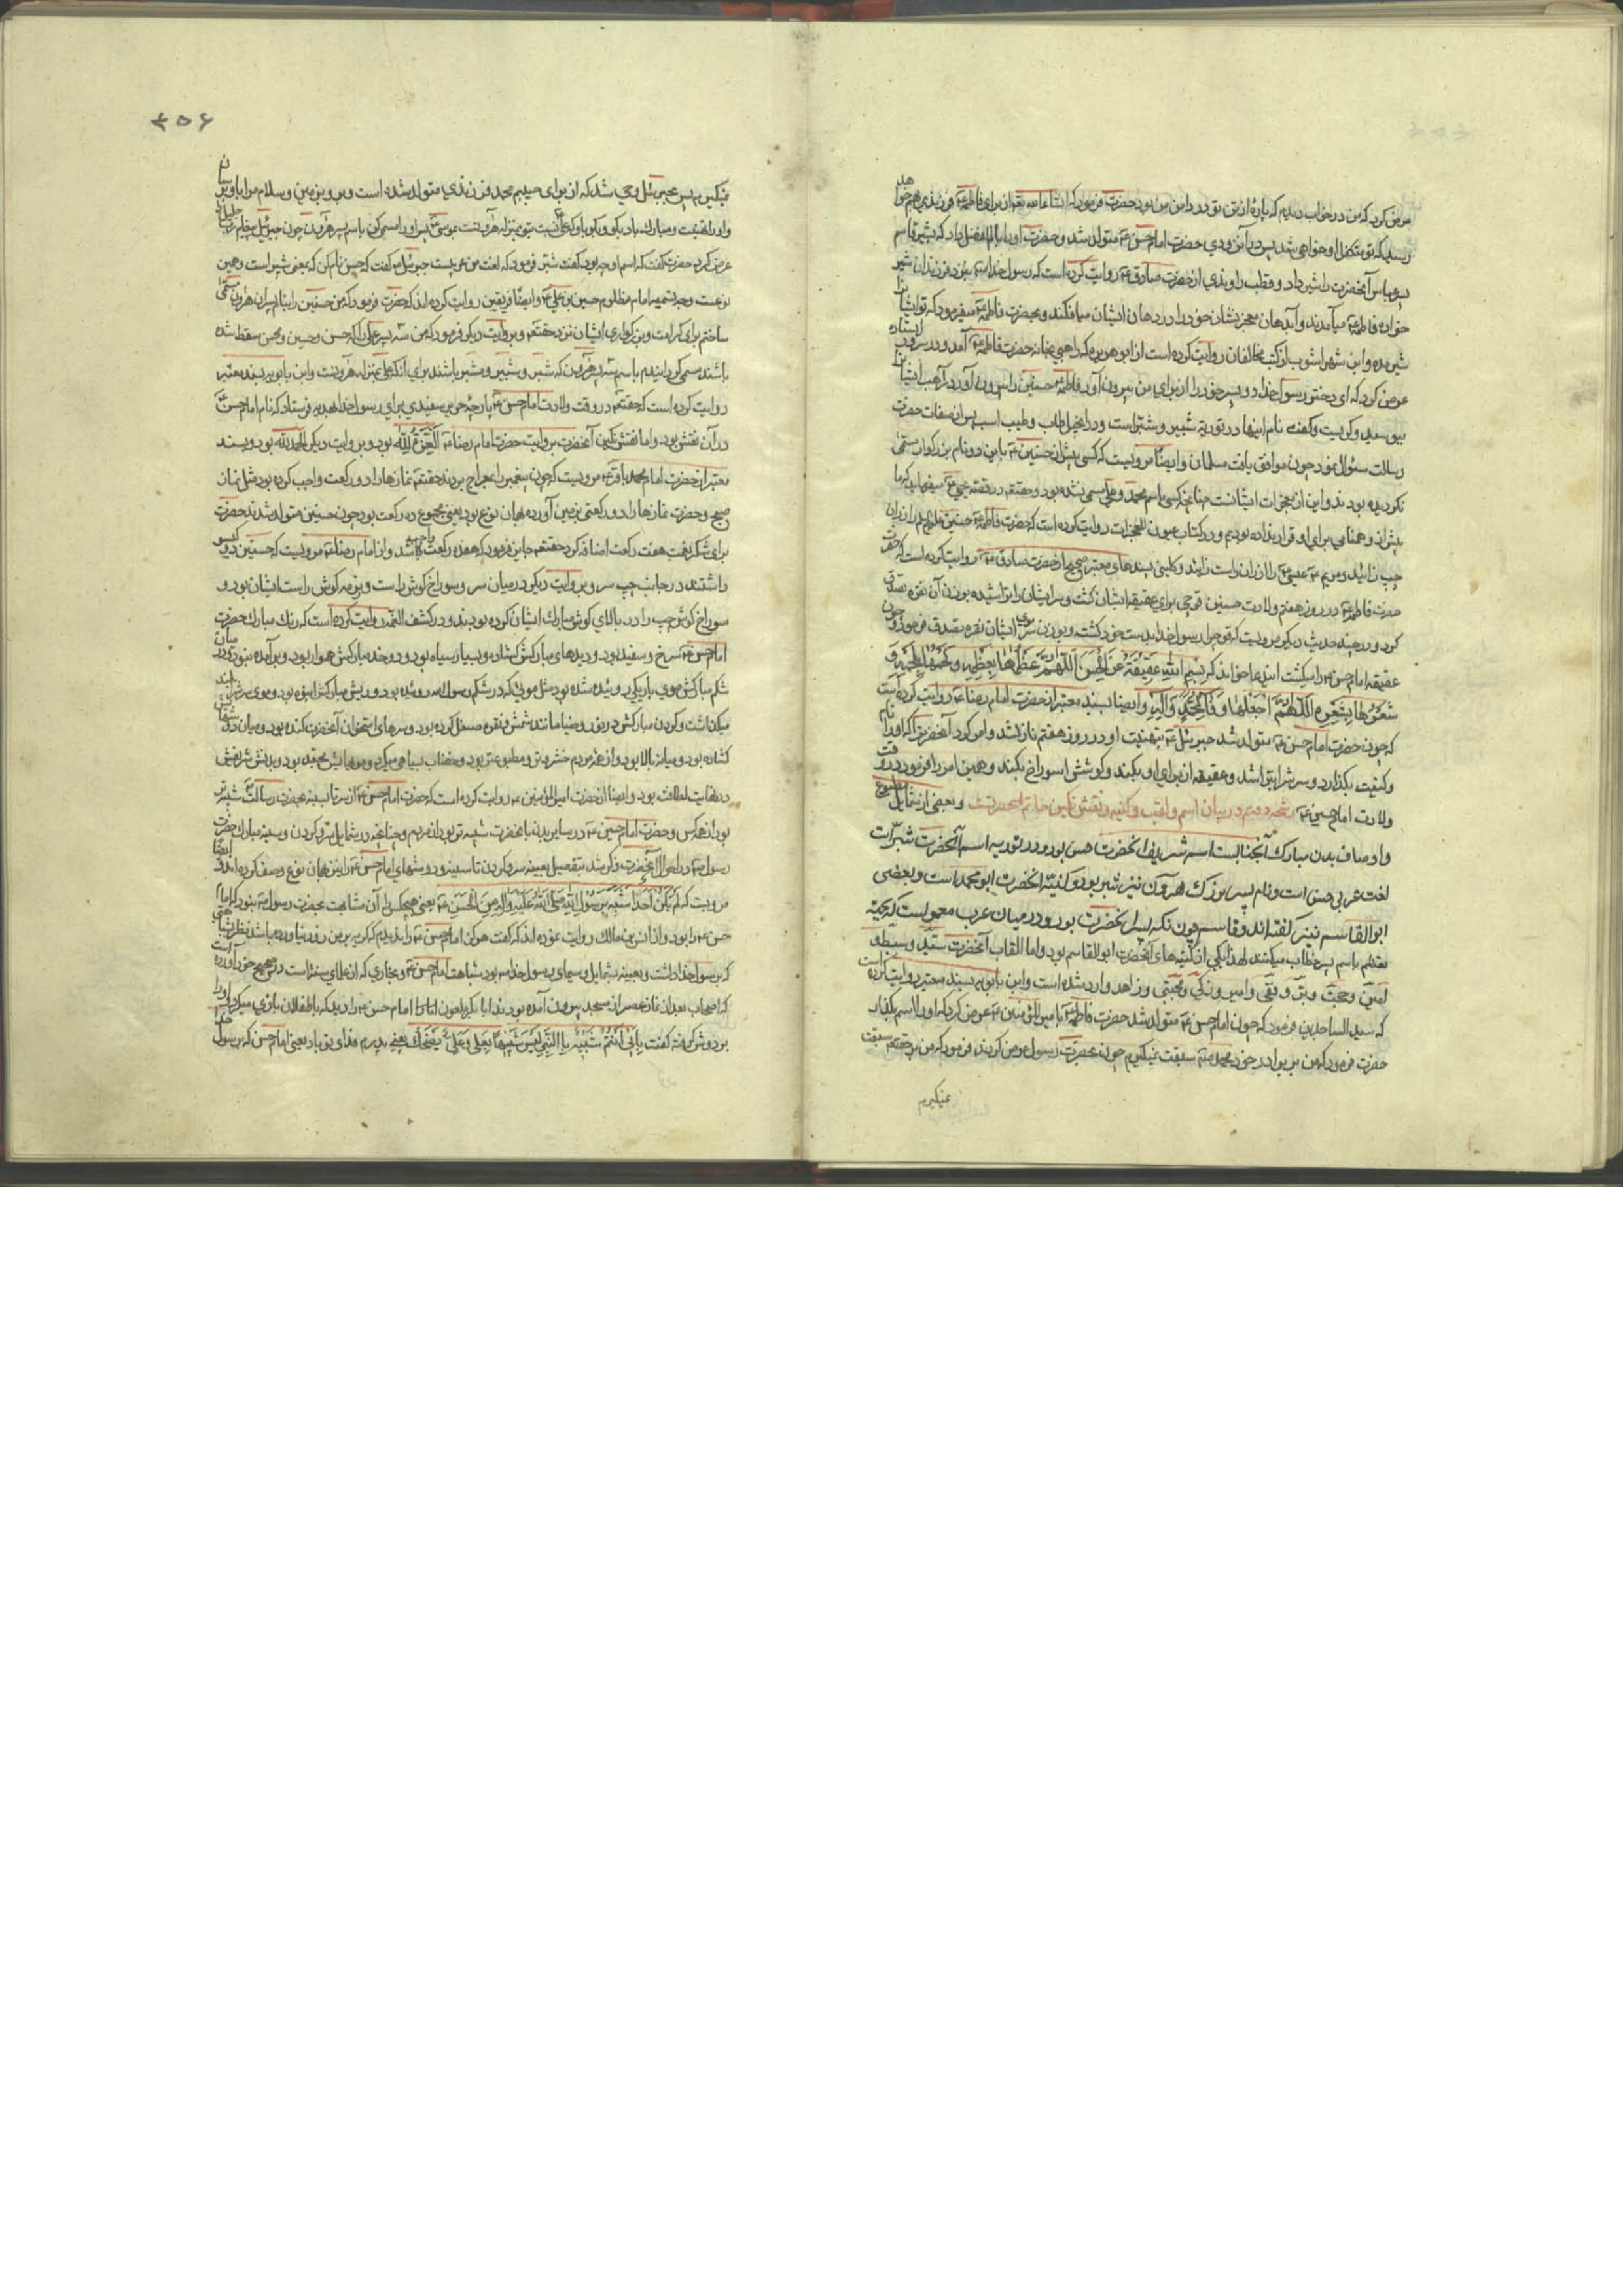 عرض کرد که من در خواب دیدم که پارهٔ از تن تو در دامن من بود حضرت فرمود که انشاءالله تعم از برای فاطمه ع فرزندی بهم خواهد
رسید که تو متکفل او خواهی شد پس بآن زودی حضرت امام حسن ع متولد شد و حضرت او را بام الفضل داد که بشیر قاسم
پسر عباس آنحضرت را شیر داد و قطب راوندی از حضرت صادق ع روایت کرده است که رسول خدا ص بنزد فرزندان شیر
خواره فاطمه ع میآمدند و آب دهان معجز نشان خود را در دهان ایشان میافکند و بحضرت فاطمه ع میفرمود که تو ایشانرا
شیر مده و ابن شهراشوب از کتب مخالفان روایت کرده است از ابوهریره که راهبی بخانه حضرت فاطمه ع آمد و در سرا ایستاده
عرض کرد که ای دختر رسول خدا دو پسر خود را از برای من بیرون آور فاطمه ع حسنین را بیرون آورد راهب ایشانرا
بوسید و گریست و گفت نام اینها در توریة شبیر و شبر است و در انجیل طاب و طیب است پس از صفات حضرت
رسالت سئوال نمود چون موافق یافت مسلمان و ایضا مرویست که کسی پیش از حسنین ع باین دو نام بزرگوار مسمی
نکردیده بودند و این از معجزات ایشانست چنانچه کسی باسم محمد و علی مسمی نشده بود و حقتعم در قصه یحیی ع میفرماید که ما
پیش از و همنامی برای او قرار نداده بودیم و در کتاب عیون المعجزات روایت کرده است که حضرت فاطمه ع حسنین علیهم را از ران
چپ زائید و مریم ع عیسی ع را از ران راست زائید و کلینی بسندهای معتبر صحیح از حضرت صادق ع روایت کرده است که حضرت
حضرت فاطمه ع در روز هفتم ولادت حسنین قوچی برای عقیقه ایشان کشت و سر ایشان را تراشیده بوزن آن نقره تصدق
کرد و در چند حدیث دیکر مرویست که قوچ را رسول خدا بدست خود کشته و بوزن موی سر ایشان نقره تصدق فرمود و چون
عقیقه امام حسن ع را میکشت این دعا خواند که بسم الله عقیقة عن الحسن اللهم عظمها بعظمه و لحمها بلحمه و
شعرها بشعره اللهم اجعلها وقاء لمحمد و آله و ایضا بسند معتبر از حضرت امام رضا ع روایت کرده است
که چون حضرت امام حسن ع متولد شد جبرئیل ع بتهنیت او در روز هفتم نازل شد و امر کرد آنحضرت را که او را نام
و کنیت بکذارد و سرش را بتراشد و عقیقه از برای او بکند و کوشش را سوراخ بکند و همین امر را فرمود در وقت
ولادت امام حسین ع شجه دوم در بیان اسم و لقب و کنیه و نقش نکین خاتم آنحضرتست و بعضی از شمایل مطبوع
و اوصاف بدن مبارك آنجنابست اسم شریف آنحضرت حسن بود و در توریه اسم آنحضرت شبر است
لغت عربی حسن است و نام پسر بزرك هرون نیز شبر بود و کنیة آنحضرت ابو محمد است و بعضی
ابوالقاسم نیز کفته اند و قاسم چون نکه پسر آنحضرت بود و در میان عرب معمول است که بجهة
تعظیم باسم پسر خطاب میکنند لهذا یکی از کنیه های آنحضرت ابوالقاسم بود و اما القاب آنحضرت سید و سبط و
امین و حجت و بر و تقی و امیر و زکی و مجتبی و زاهد وارد شده است و ابن بابویه بسند معتبر روایت کرده است
که سید الساجدین فرمود که چون امام حسن ع متولد شد حضرت فاطمه ع بامیرالمؤمنین ع عرض کرد که او را اسم بکذار
حضرت فرمود که من بر برادر خود محمد ص سبقت نمیکیرم چون بحضرت رسول عرض کردند فرمود که من بر حقتعم سبقت
نمیکیرم
۴۵۶
نمیکیرم پس بجبرئیل وحی شد که از برای حبیبم محمد فرزندی متولد شده است و برو بزمین و سلام مرا باو برسان
و او را تهنیت و مبارك باد بکو و بکو باو که علی نسبت بتو بمنزله هارونست بموسی پس او را مسمی کن باسم پسر هرون چون جبرئیل پیغام رب جلیل را
عرض کرد حضرت کفت که اسم او چه بود کفت شبر فرمود که لغت من عربیست جبرئیل کفت که حسن نام کن که بمعنی شبر است و همین
نوعست وجه تسمیه امام مظلوم حسین بن علی ع و ایضا فریقین روایت کرده اند که حضرت فرمود که من حسنین را بنام پسران هارون مسمی
ساختم برای کرامت و بزرکواری ایشان نزد حقتعم و بروایت دیکر فرمود که من سه پسر علی را که حسن و حسین و محسن سقط شده
باشند مسمی کردانیدم باسم سه پسر هرون که شبر و شبیر و مشبر باشند برای آنکه علی بمنزله هارونست و ابن بابویه بسند معتبر
روایت کرده است که حقتعم در وقت ولادت امام حسن ع پارچه حریر سفیدی برای رسول خدا هدیه فرستاد که نام امام حسن ع
در آن نقش بود و اما نقش نکین آنحضرت بروایت حضرت امام رضا ع العزة لله بود و بروایت دیکر الحمد لله بود و بسند
معتبر از حضرت امام محمد باقر ع مرویست که چون پیغمبر را بمعراج بردند حقتعم نمازها را دو رکعت واجب کرده بود مثل نماز
صبح و حضرت نمازها را دو رکعتی بزمین آورده بهمان نوع بود یعنی مجموع ده رکعت بود چون حسنین متولد شدند حضرت
برای شکر نعمت هفت رکعت اضافه کرد حقتعم جایز فرمود که هفده رکعت واجب شد و از امام رضا ع مرویست که حسنین دو کیسو
داشتند در جانب چپ سر و بروایت دیکر در میان سر و سوراخ کوش راست و نرمه کوش راست ایشان بود و
سوراخ کوش چپ را در بالای کوش مبارك ایشان کرده بودند و در کشف الغمه روایت کرده است که رنك مبارك حضرت
امام حسن ع سرخ و سفید بود و دیدهای مبارکش کشاده و بسیار سیاه بود و دو خد مبارکش هموار بود و برآمده نبود و در میان
شکم مبارکش موی باریکی روئیده شده بود مثل موئی که در شکم رسول الله روئیده بود و ریش مبارکش انبوه بود و موی سر را بلند
میکذاشت و کردن مبارکش در نور و ضیا مانند شمش نقره صیقل کرده بود و سرهای استخوان آنحضرت کنده بود و میان دو کتفش
کشاده بود و میانه بالا بود و از همه مردم خوشروتر و مطبوعتر بود و خضاب بسیاهی میکرد و موهایش مجعد بود و بدنش شریفش
در نهایت لطافت بود و ایضا از حضرت امیرالمؤمنین ع روایت کرده است که حضرت امام حسن ع از سر تا بسینه بحضرت رسالت شبیه تر
بود از همه کس و حضرت امام حسین ع در سایر بدن بآنحضرت شبیه تر بود از مردم و چنانچه در شمایل سر و کردن و سینه مبارك حضرت
رسول ص در احوال آنحضرت ذکر شد بتفصیل بعینه سر و کردن تا سینه و دوشهای امام حسن ع را بهمان نوع وصف کرده اند و ایضا
مرویست که لم یکن احدا شبیه برسول الله صلی الله علیه و آله من الحسن ع یعنی هیچکس را آن مشابهت بحضرت رسول ص نبود که امام
حسن ع را بود و از انس بن مالك روایت نموده اند که کفت هرکز امام حسن ع را ندیدم که کریه بر من زور نیاورده باشد
که برسول خدا داشت و بعینه بشمایل و سیمای رسول خدا ص بود شباهت امام حسن ع و بخاری که از علمای سنیانست در صحیح خود آورده است
که اصحاب بعد از نماز عصر از مسجد بیرون آمده بودند ابابکر امام حسن ع را دید که باطفلان بازی میکرد او را
بر دوش کرفته کفت بابی انتم شبیه بالنبی لیس شبیها بعلی و علی یضحك یعنی پدرم فدای تو باد یعنی امام حسن که برسول خدا